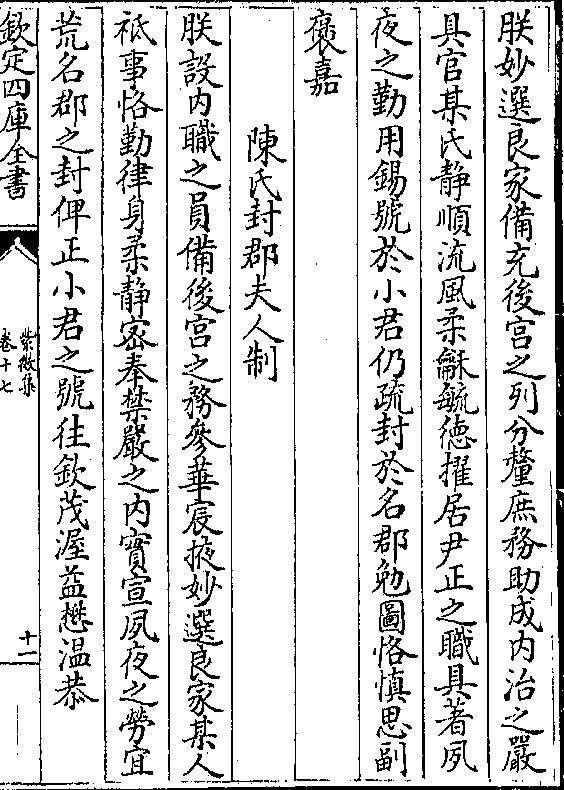 朕妙選良家備充後宫之列分釐庶務助成内治之嚴
具官某氏静順流風柔龢毓徳擢居尹正之職具著夙
夜之勤用錫號於小君仍疏封於名郡勉圖恪慎思副
褒嘉
陳氏封郡夫人制
朕設内職之員備後宫之務參華宸掖妙選良家某人
祗事恪勤律身柔静密奉禁嚴之内實宣夙夜之勞宜
荒名郡之封俾正小君之號往欽茂渥益懋温恭
欽定四庫全書
紫微集
卷十七
十一